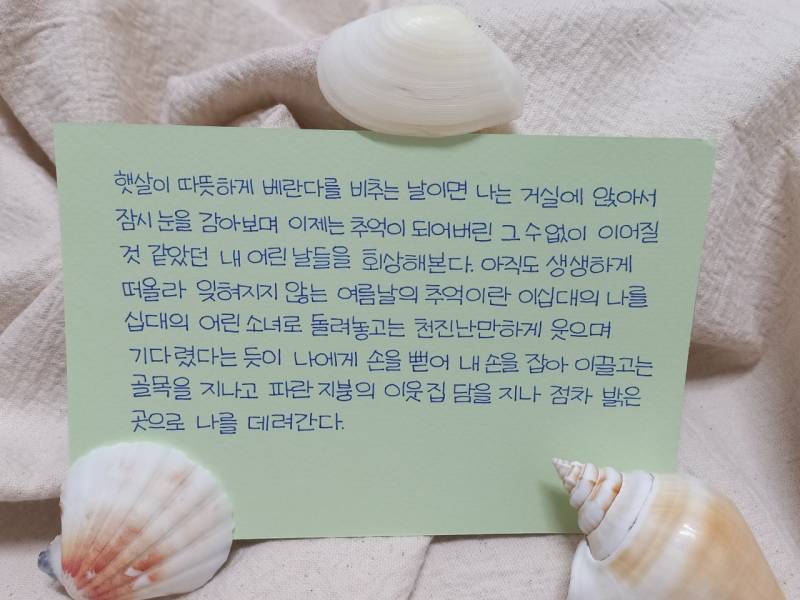 햇살이 따뜻하게 베란다를 비추는 날이면 나는 거실에 앉아서
잠시 눈을 감아보며 이제는 추억이 되어버린 그 수없이 이어질
것 같았던 내 어린 날들을 회상해본다. 아직도 생생하게
떠올라 잊혀지지 않는 여름날의 추억이란 이십대의 나를
십대의 어린 소녀로 돌려놓고는 천진난만하게 웃으며
기다렸다는 듯이 나에게 손을 뻗어 내 손을 잡아 이끌고는
골목을 지나고 파란 지붕의 이웃집 담을 지나 점차 밝은
곳으로 나를 데려간다.